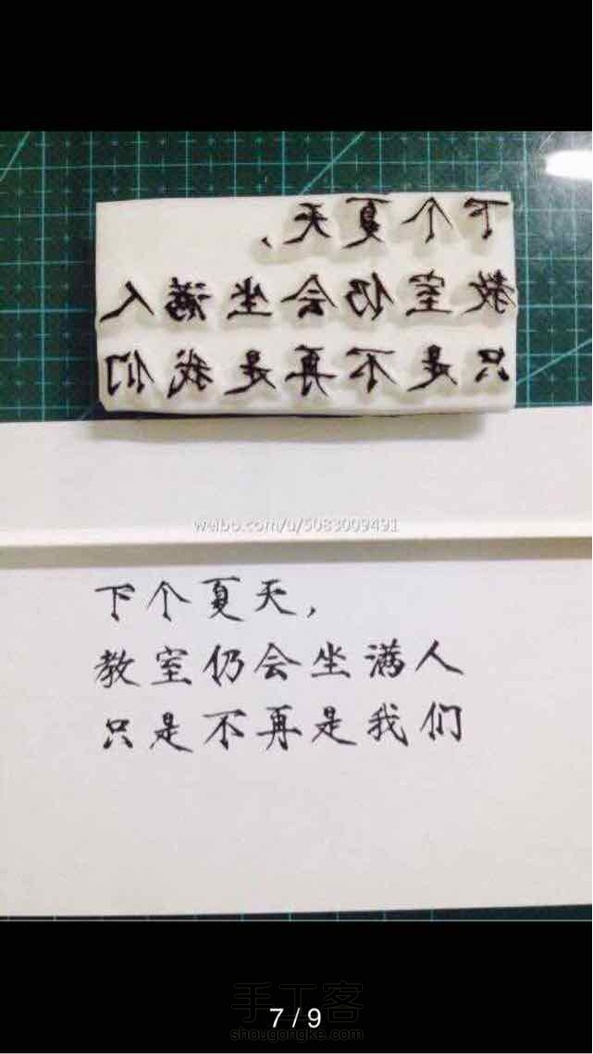 下个夏天，
教室仍会坐满人
只是不再是我们
weibo.com/u/5083009491
下个夏天，
教室仍会坐满人
只是不再是我们
手工客
7 / 9
shougongke.com